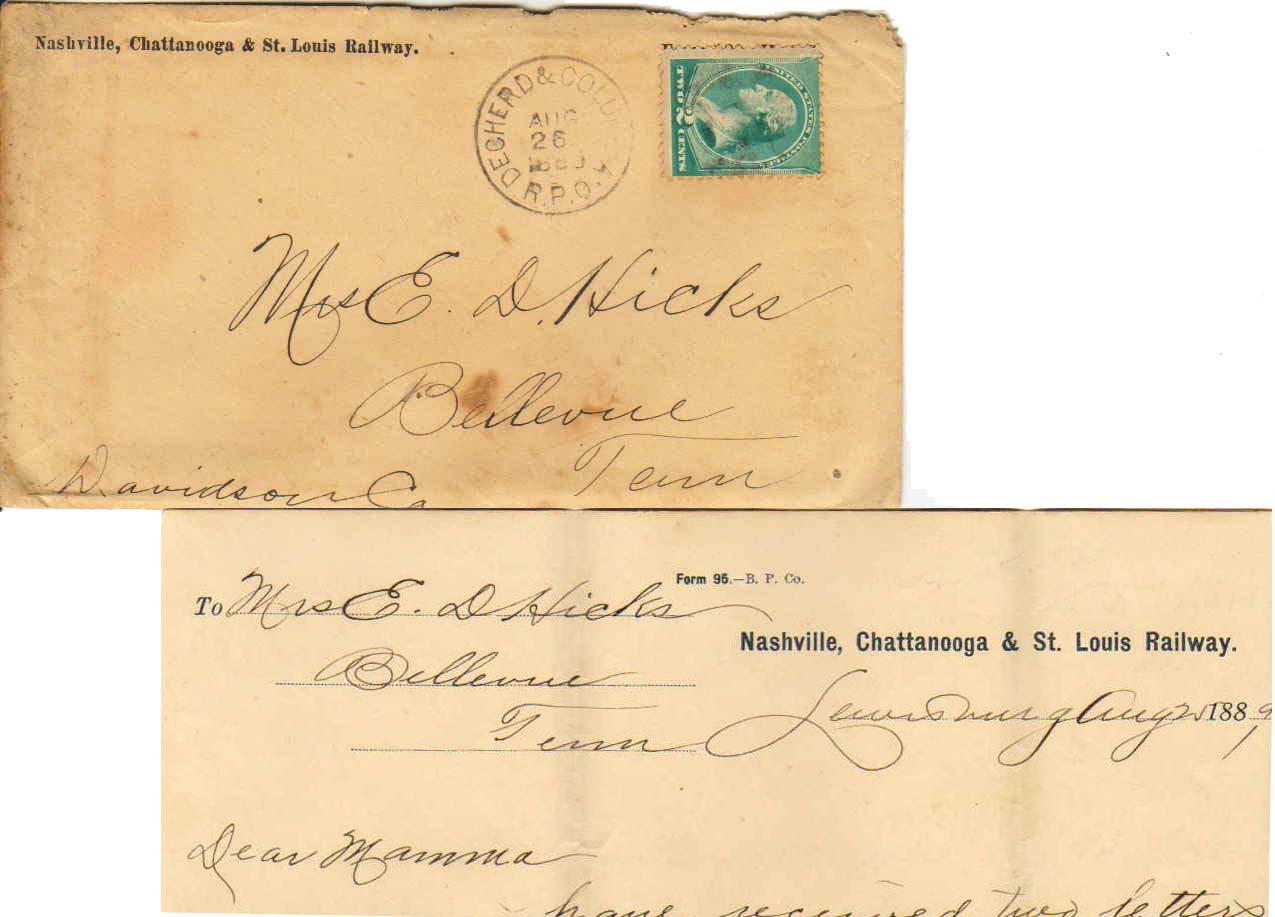 Nashville, Chattanooga & St. Louis Railway.
DECHERD & COLU
AUG
26
R.P.O.
UNITED STATES POSTAGE
TWO 2 CENTS
Mrs E. D. Hicks
Bellevue
Tenn
Davidson Co
Form 96.—B. P. Co.
To Mrs E. D Hicks
Nashville, Chattanooga & St. Louis Railway.
Bellevue
Lewisburg Aug 25 1889
Tenn
Dear Mamma
have received two letters